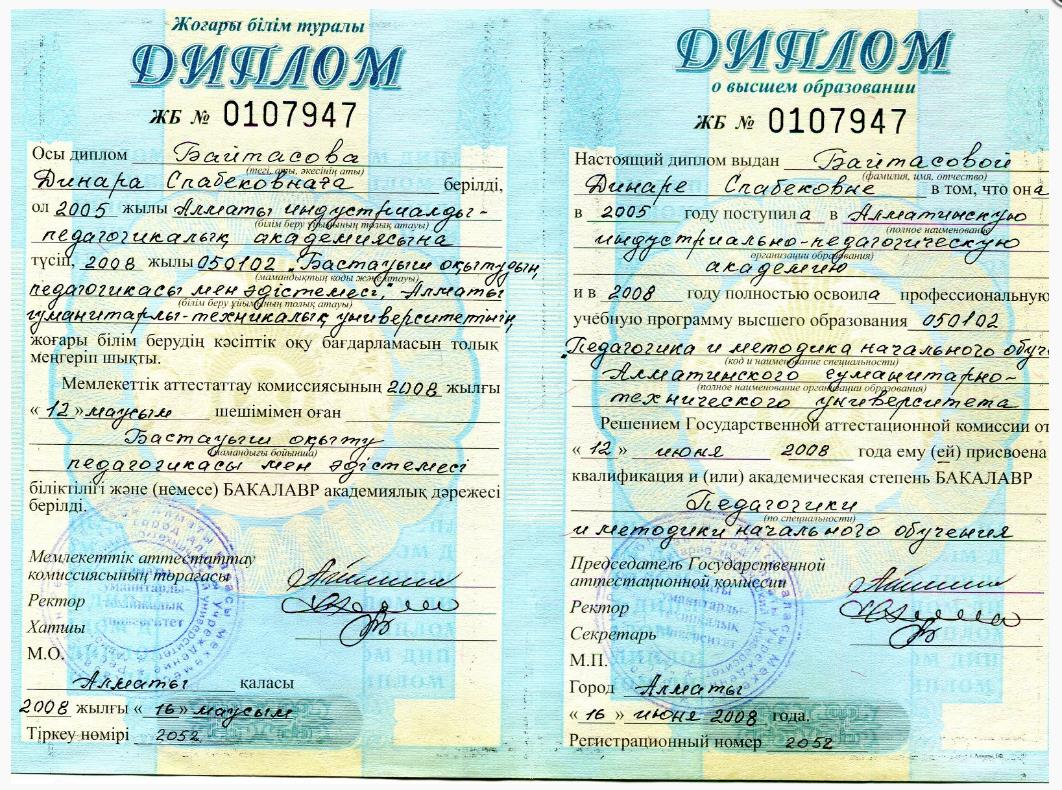 Жоғары білім туралы
ДИПЛОМ
ЖБ № 0107947
Осы диплом Байтасова
(тегі, аты, әкесінің аты)
Динара Спабековнаға берілді,
ол 2005 жылы Алматы индустриалды-
(білім беру ұйымының толық атауы)
педагогикалық академиясына
түсіп, 2008 жылы 050102 „Бастауыш оқытудың
(мамандықтың коды және атауы)
педагогикасы мен әдістемесі," Алматы
(білім беру ұйымының толық атауы)
гуманитарлы-техникалық университетінің
жоғары білім берудің кәсіптік оқу бағдарламасын толық
меңгеріп шықты.
Мемлекеттік аттестаттау комиссиясының 2008 жылғы
« 12 » маусым шешімімен оған
Бастауыш оқыту
(мамандығы бойынша)
педагогикасы мен әдістемесі
біліктілігі және (немесе) БАКАЛАВР академиялық дәрежесі
берілді.
Мемлекеттік аттестаттау
комиссиясының төрағасы
Ректор
Хатшы
М.О.
Алматы қаласы
2008 жылғы « 16 » маусым
Тіркеу нөмірі 2052
ДИПЛОМ
о высшем образовании
ЖБ № 0107947
Настоящий диплом выдан Байтасовой
(фамилия, имя, отчество)
Динаре Спабековне в том, что она
в 2005 году поступила в Алматинскую
(полное наименование
индустриально-педагогическую
организации образования)
академию
и в 2008 году полностью освоила профессиональную
учебную программу высшего образования 050102
„Педагогика и методика начального обуч
(код и наименование специальности)
Алматинского гуманитарно-
(полное наименование организации образования)
технического университета
Решением Государственной аттестационной комиссии от
« 12 » июня 2008 года ему (ей) присвоена
квалификация и (или) академическая степень БАКАЛАВР
Педагогики
(по специальности)
и методики начального обучения
Председатель Государственной
аттестационной комиссии
Ректор
Секретарь
М.П.
Город Алматы
« 16 » июня 2008 года.
Регистрационный номер 2052